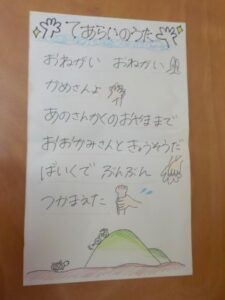 てあらいのうた
おねがい　おねがい
かめさんよ
あのさんかくのおやままで
おおかみさんときょうそうだ
ばいくで　ぶんぶん
つかまえた